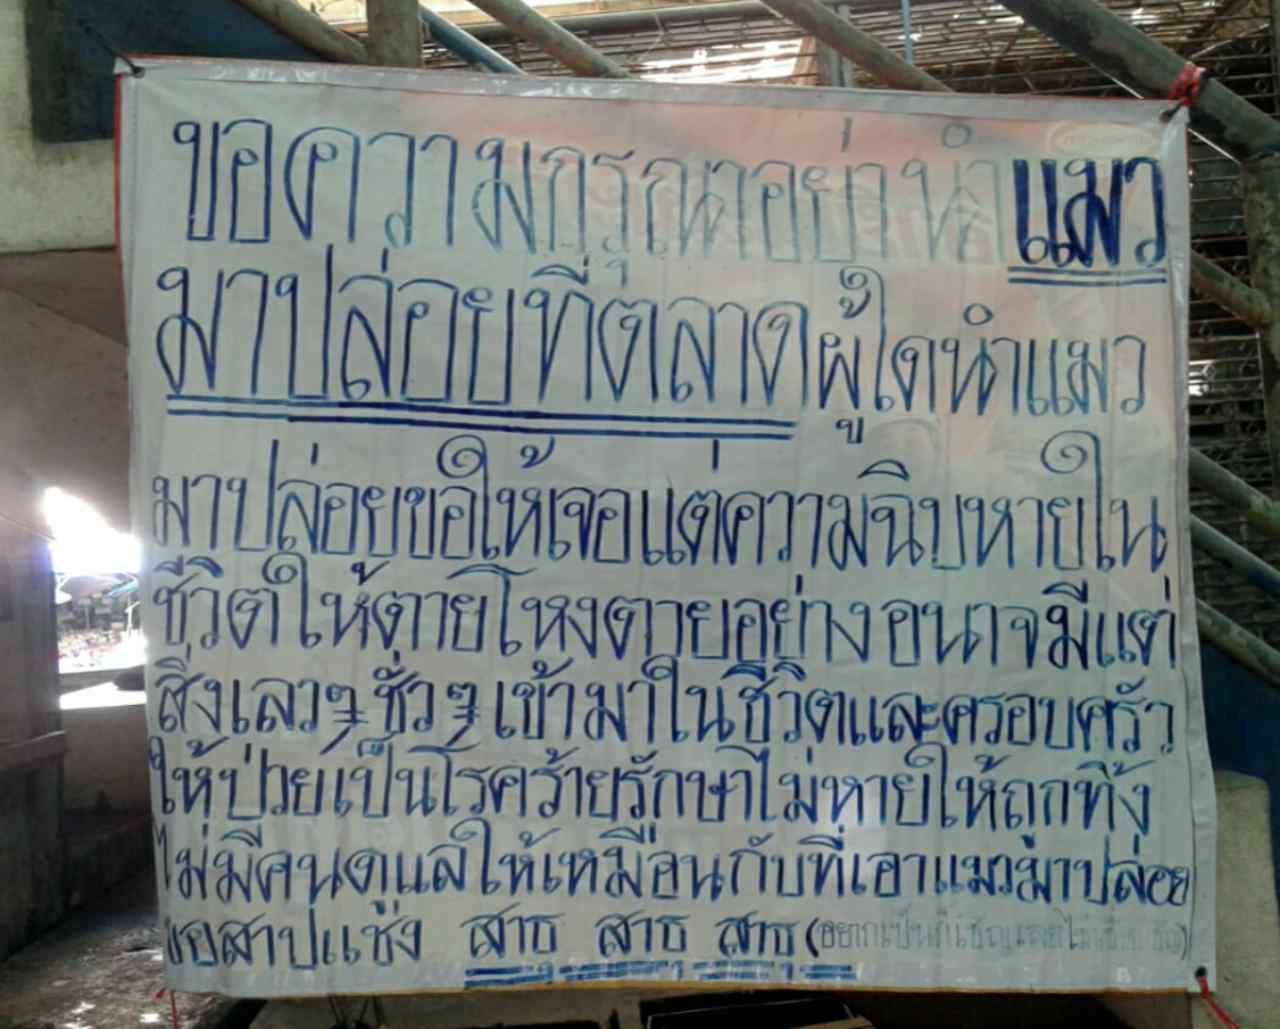 ขอความกรุณาอย่านำแมว
มาปล่อยที่ตลาดผู้ใดนำแมว
มาปล่อยขอให้เจอแต่ความฉิบหายใน
ชีวิตให้ตายโหงตายอย่างอนาจมีแต่
สิ่งเลวๆชั่วๆเข้ามาในชีวิตและครอบครัว
ให้ป่วยเป็นโรคร้ายรักษาไม่หายให้ถูกทิ้ง
ไม่มีคนดูแลให้เหมือนกับที่เอาแมวมาปล่อย
ขอสาปแช่ง สาธุ สาธุ สาธุ (อยากเป็นก็เชิญ